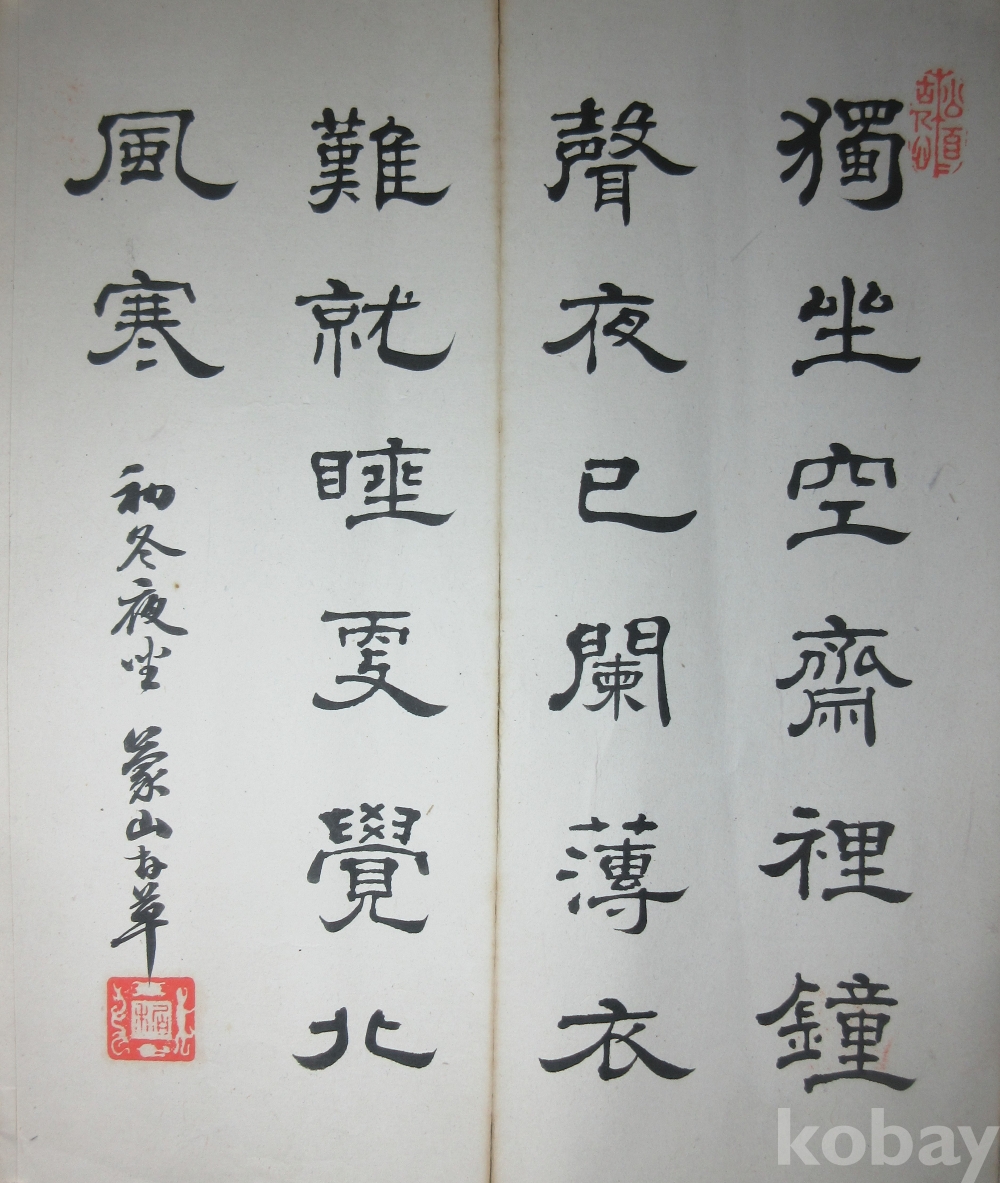 獨坐空齋裡鐘
聲夜已闌薄衣
難就睡更覺北
風寒
初冬夜坐 蒙山古草
kobay